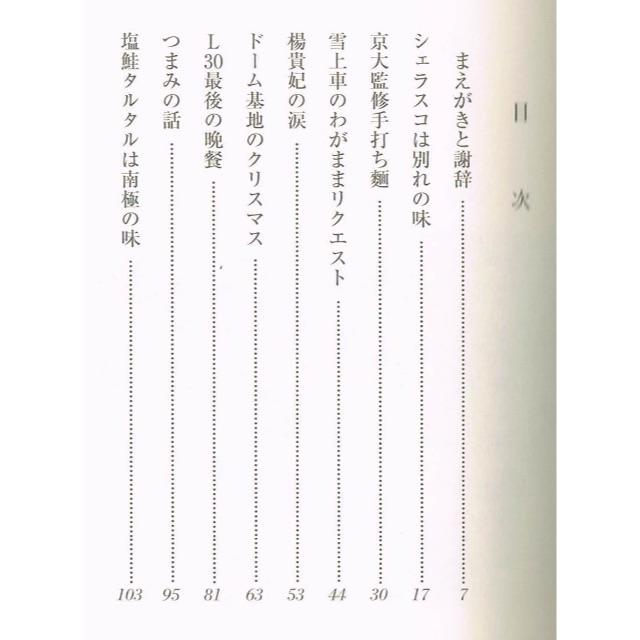 目次
まえがきと謝辞 7
シェラスコは別れの味 17
京大監修手打ち麺 30
雪上車のわがままリクエスト 44
楊貴妃の涙 53
ドーム基地のクリスマス 63
L30最後の晩餐 81
つまみの話 95
塩鮭タルタルは南極の味 103